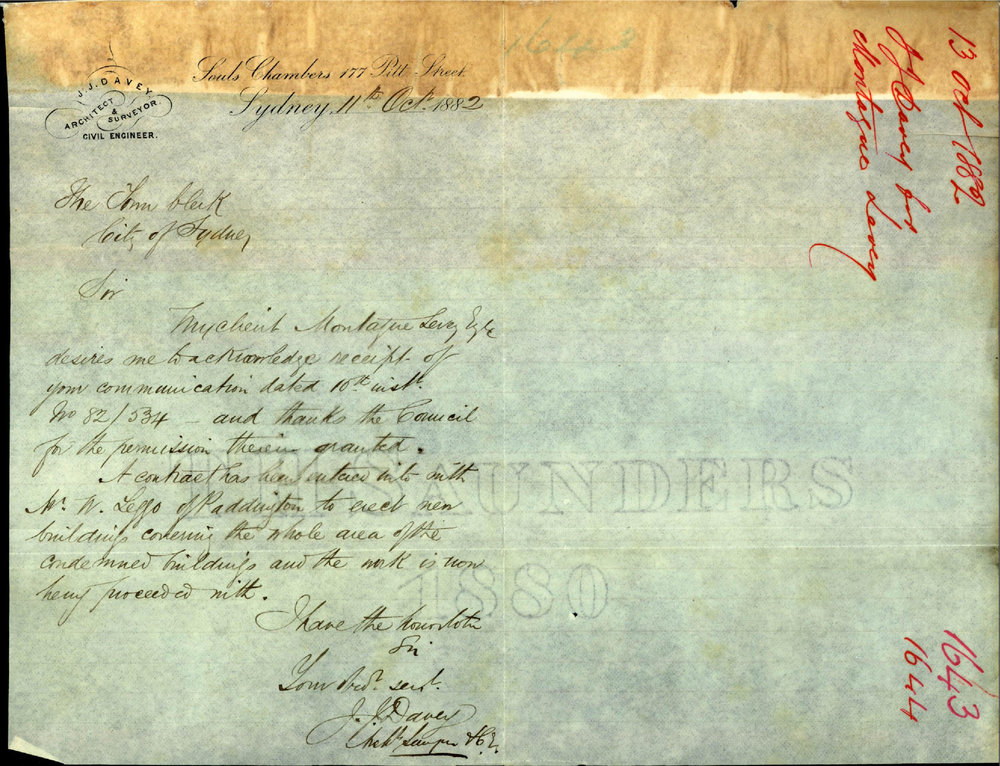 1643
Souls Chambers 177 Pitt Street
Sydney, 11th Octr. 1882
J. J. DAVEY.
ARCHITECT
&
SURVEYOR
CIVIL ENGINEER.
The Town Clerk
City of Sydney
Sir
My client Montague Levey Esqre
desires me to acknowledge receipt of
your communication dated 10th inst.
No 82/534 – and thanks the Council
for the permission therein granted.
A contract has been entered into with
Mr. W. Leggo of Paddington to erect new
buildings covering the whole area of the
condemned buildings and the work is now
being proceeded with.
I have the honor to be
Sir
Your obdt. servt.
J. J. Davey
Archt. Surveyor & C.E.
13 Oct 1882
J J Davey for
Montague Levey
1643
1644
SAUNDERS
1880